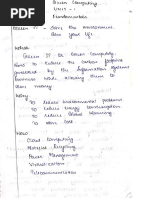 Green Computing
UNIT - I
Fundamentals
Green IT
Save the environment
Save your life
What
Green IT or Green Computing
To Reduce the carbon footprint
generated by the Information Systems
business while allowing them to
save money
Why
To Reduce environmental problems
To Reduce Energy Consumption
To save Cost
How
Cloud Computing
Material Recycling
Power Management
Virtualization
Telecommunication